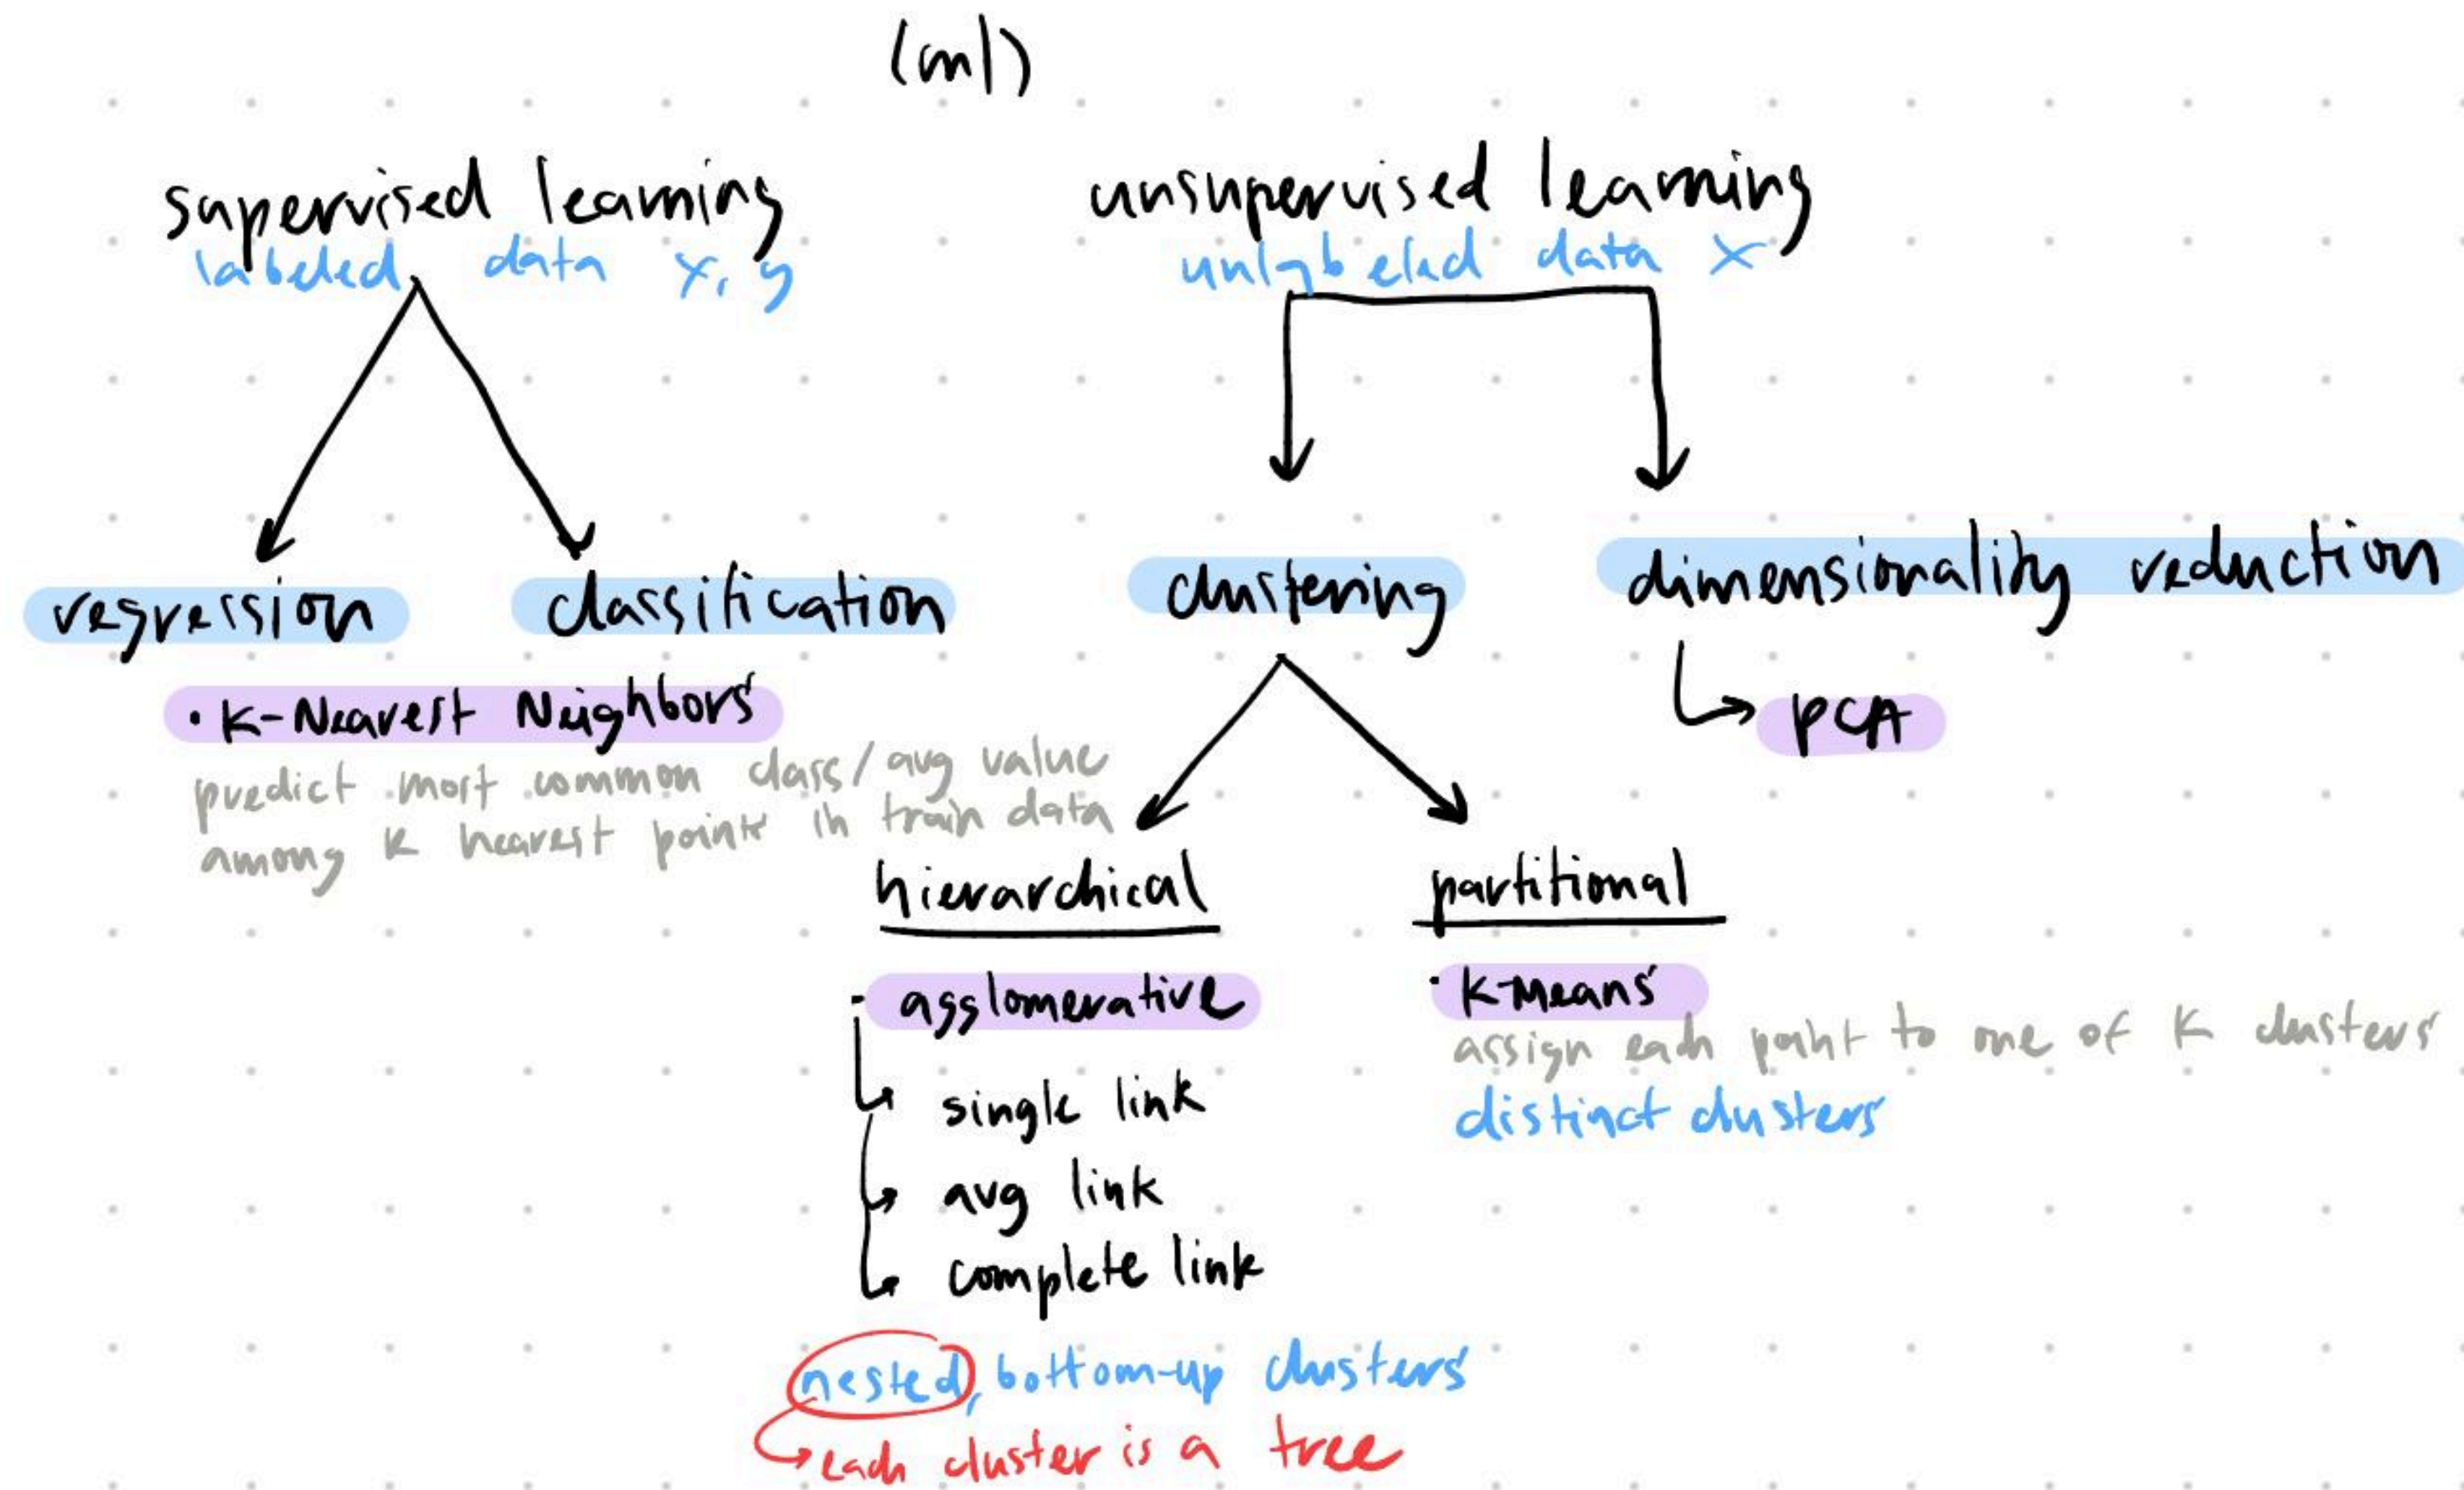 (ml)
supervised learning
labeled data x, y
unsupervised learning
unlabeled data x
regression
classification
clustering
dimensionality reduction
• K-Nearest Neighbors
predict most common class/avg value
among K nearest points in train data
→ PCA
hierarchical
partitional
• agglomerative
single link
avg link
complete link
nested, bottom-up clusters
each cluster is a tree
• K-Means
assign each point to one of K clusters
distinct clusters